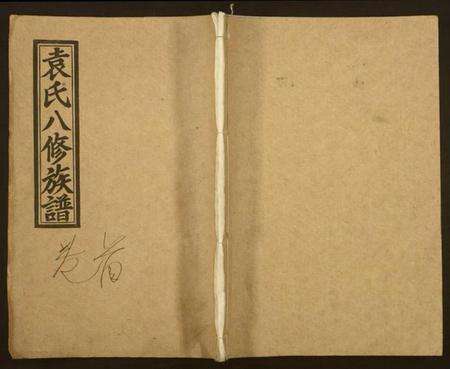 袁氏八修族譜
卷首